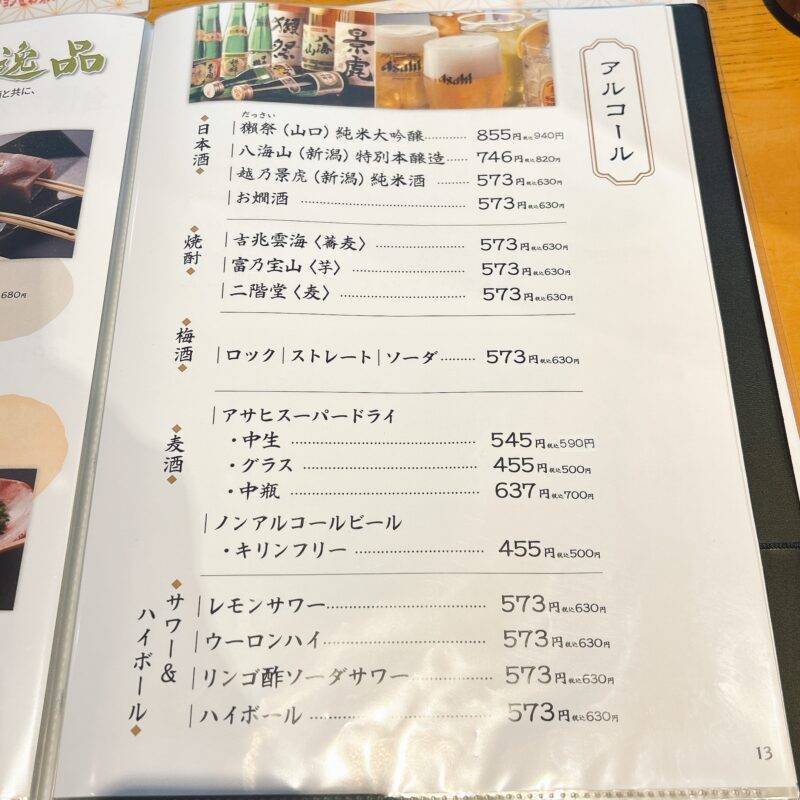 逸品
と共に、
680円
アルコール
獺祭
八海山
景虎
Asahi
Asahi
日本酒
だっさい
獺祭（山口）純米大吟醸 855円税込940円
八海山（新潟）特別本醸造 746円税込820円
越乃景虎（新潟）純米酒 573円税込630円
お燗酒 573円税込630円
焼酎
吉兆雲海〈蕎麦〉 573円税込630円
富乃宝山〈芋〉 573円税込630円
二階堂〈麦〉 573円税込630円
梅酒
ロック|ストレート|ソーダ 573円税込630円
麦酒
アサヒスーパードライ
・中生 545円税込590円
・グラス 455円税込500円
・中瓶 637円税込700円
ノンアルコールビール
・キリンフリー 455円税込500円
サワー&
ハイボール
レモンサワー 573円税込630円
ウーロンハイ 573円税込630円
リンゴ酢ソーダサワー 573円税込630円
ハイボール 573円税込630円
13